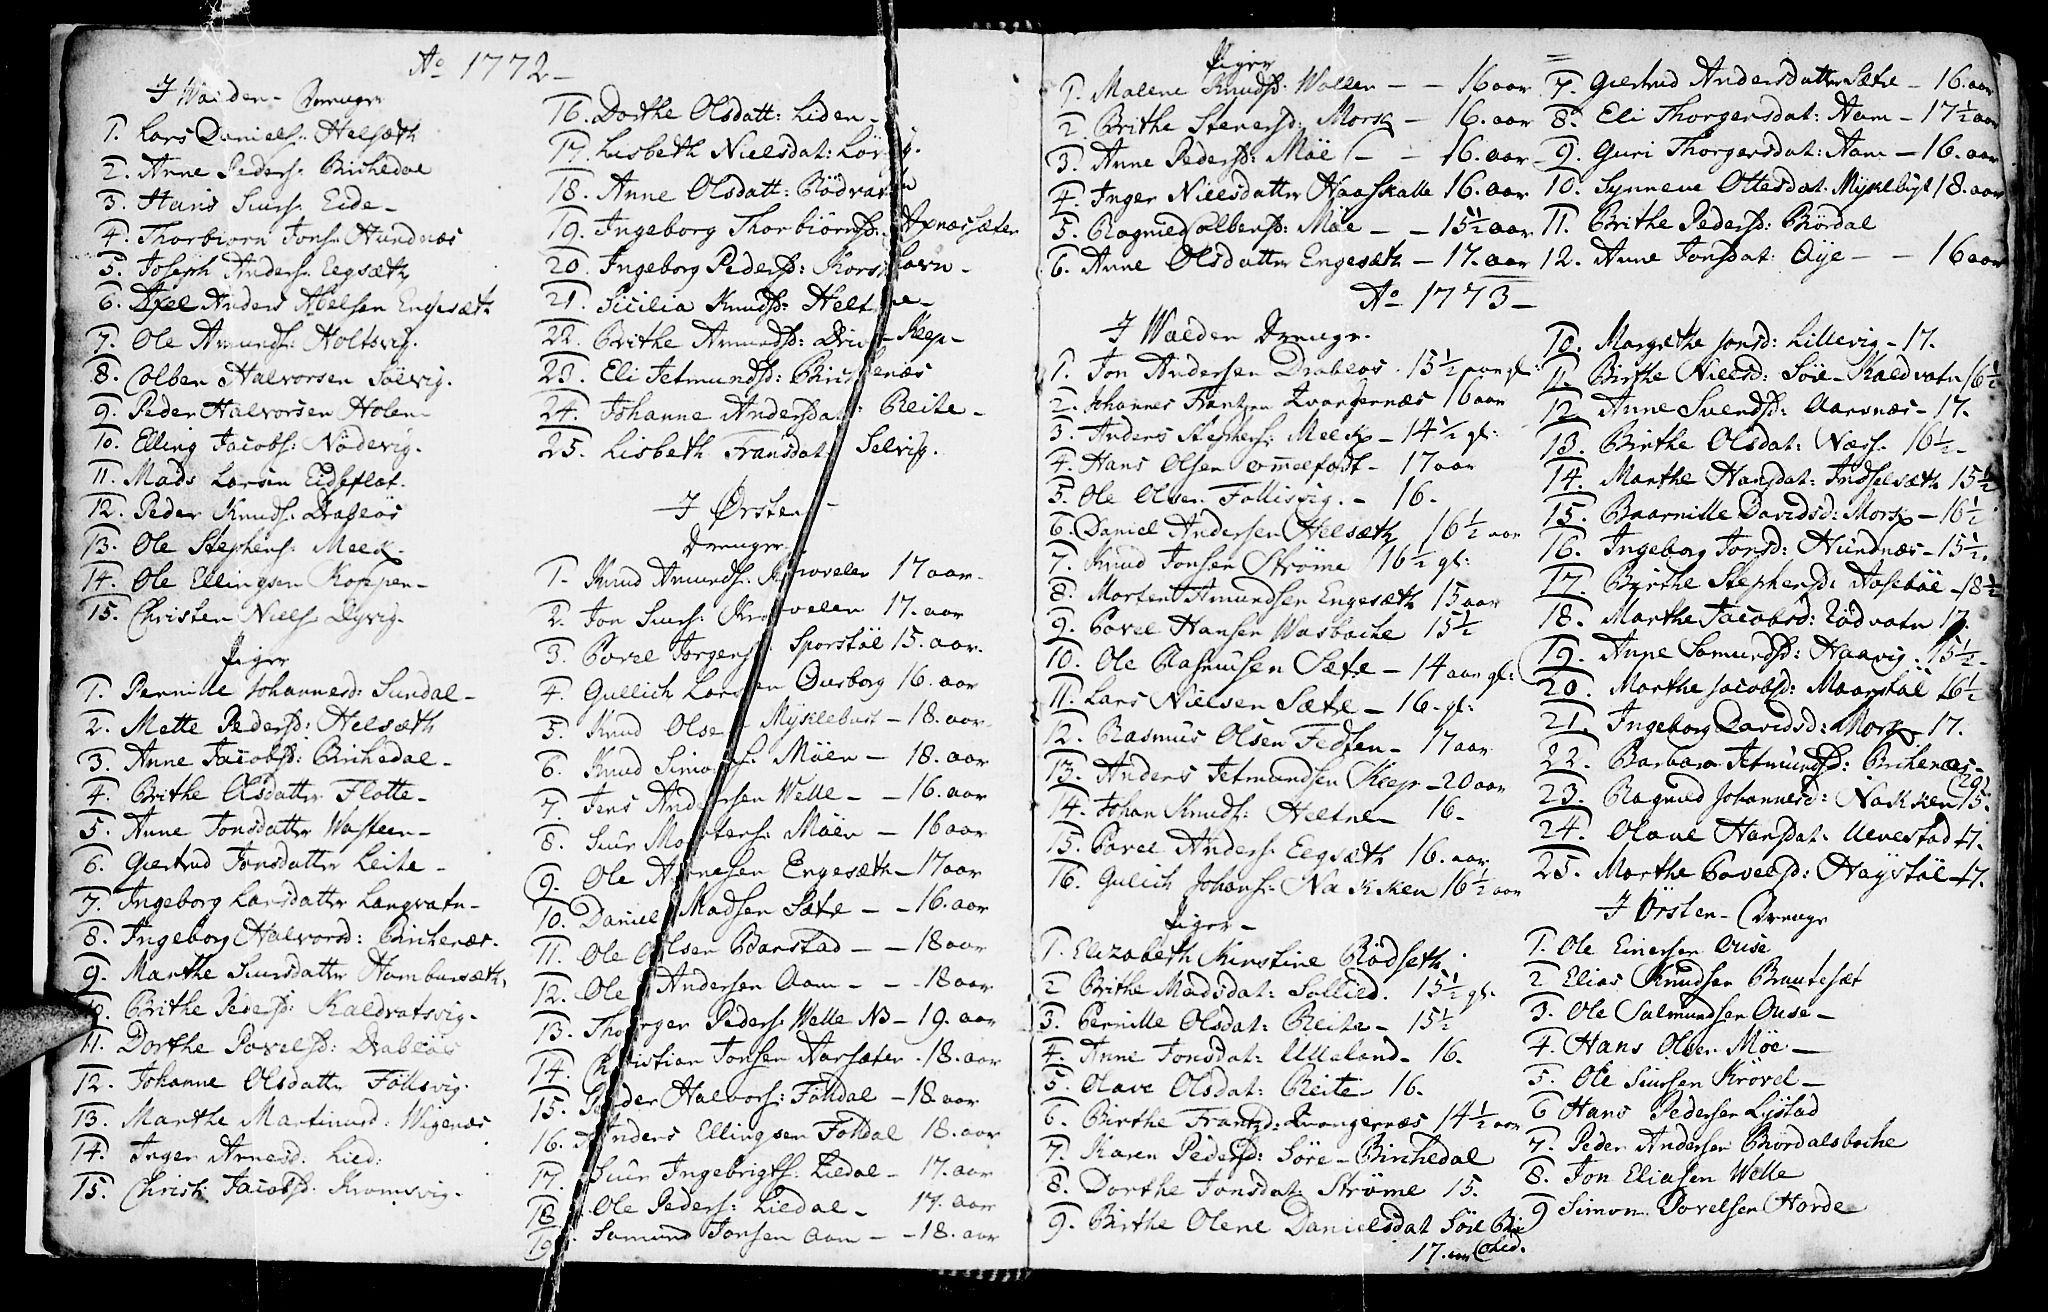 Ao 1772
I Walden Drenger
1. Lars Daniels: Helsæth
2. Arne Peders: Birchedal
3. Hans Siurs: Eide
4. Thorbiørn Jons: Hundnæs
5. Joseph Anders: Eegsæth
6. Anders Abelsen Engesæth
7. Ole Amunds: Holtsvig.
8. Colben Halvorsen Sølvig.
9. Peder Halvorsen Holen
10. Elling Jacobs: Nødevig.
11. Mads Larsen Eideflot.
12. Peder Knuds: Drabløs
13. Ole Stephens: Meek.
14. Ole Ellingsen Koppen
15. Christen Niels: Dyvig.
Piger
1. Pernille Johannesd: Sundal
2. Mette Pedersd: Helsæth
3. Anne Jacobsd: Birchedal
4. Brithe Olsdatter Flotte
5. Anne Jonsdatter Wasteen
6. Giertrud Jonsdatter Leite
7. Ingeborg Larsdatter Langvatn
8. Ingeborg Halvorsd: Birchenæs.
9. Marthe Siursdatter Hambursæth,
10. Brithe Pedersd: Kaldvatsvig.
11. Dorthe Povelsd: Drabløs
12. Johanne Olsdatter Follsvig.
13. Marthe Martinusd: Wigenæs
14. Inger Arnesd: Lied:
15. Christi Jacobsd: Kromsvig.
16. Dorthe Olsdatt: Liden
17. Lisbeth Nielsdat:
18. Anne Olsdatt: Rødvatn
19. Ingeborg Thorbiørnsd: Axnæssæter
20. Ingeborg Pedersd: Korshavn
21. Sicilia Knudsd: Heltne
22. Brithe Amundsd: Kiep
23. Eli Jetmundsd: Birchenæs
24. Johanne Andersdat: Reite
25. Lisbeth Fransdat: Selvig.
I Ørsten
Drenger
1. Knud Amunds: 17 aar.
2. Jon Siurs: 17. aar
3. Povel Jørgens: Sporstøl 15. aar.
4. Gullich Larsen Ouseborg 16. aar
5. Knud Olsen Myklebust 18. aar
6. Knud Simons: Møen 18. aar
7. Jens Andersen Welle 16. aar
8. Siur Mortens: Møen 16 aar
9. Ole Arnesen Engesæth 17 aar
10. Daniel Madsen Sæte 16. aar
11. Ole Olsen Barstad 18 aar
12. Ole Andersen Aam 18 aar
13. Thorger Peders: Welle NB 19. aar
14. Christian Jonsen Aarsæter 18. aar
15. Peder Halvors: Folldal 18. aar
16. Anders Ellingsen Folldal 18. aar
17. Siur Ingebrigts: Liedal 17. aar
18. Ole Peders: Liedal 17. aar
19. Samund Jonsen Aam 18. aar
Piger
1. Malene Knudsd: Wallen 16 aar
2. Brithe Stenersd: Morsk 16. aar
3. Anne Pedersd: Møe 16. aar
4. Inger Nielsdatter Haaskalle 16. aar
5. Ragnild Colbensd: Møe 15½ aar
6. Anne Olsdatter Engesæth 17. aar
7. Giertrud Andersdatter Sæte 16. aar
8. Eli Thorgersdat: Aam 17½ aar
9. Guri Thorgersdat: Aam 16. aar
10. Synneve Ottesdat: Myklebust 18. aar
11. Brithe Pedersd: Børdal
12. Anne Jonsdat: Øye 16 aar
Ao 1773
I Walden Drenge.
1. Jon Andersen Drabløs. 15½ aar gl:
2. Johannes Frantzen Kvangernæs 16 aar
3. Anders Stephens: Meek 14½ gl:
4. Hans Olsen 17 aar
5. Ole Olsen Follisvig. 16.
6. Daniel Andersen Helsæth 16½ aar
7. Knud Jonsen Strøme 16½ gl:
8. Morten Amundsen Engesæth 15 aar
9. Povel Hansen Wasbache 15½
10. Ole Rasmusen Sæte 14 aar gl:
11. Lars Nielsen Sæte 16. gl:
12. Rasmus Olsen Fedten 17 aar
13. Anders Jetmundsen Kiep 20 aar
14. Johan Knuds: Heltne 16.
15. Povel Anders: Eegsæth 16. aar
16. Gulich Johans: Nakken 16½ aar
Piger
1. Elizabeth Kirstine Rødseth
2 Brithe Madsdat: Sollied. 15½ gl.
3. Pernille Olsdat: Reite 15½
4. Anne Jonsdat: Ulleland 16.
5. Olave Olsdat: Reite 16.
6. Birthe Frantzd: Kvangernæs 14½ aar
7. Karen Pedersd: Søre Birchedal
8. Dorthe Jonsdat: Strøme 15.
9. Birthe Olene Danielsdat Søre Bir
17. aar ched.
10. Margrethe Jonsd: Lillevig 17.
11. Birthe Nielsd: Søre Kaldvatn 16½
12. Anne Svendsd: Aarsnæs 17.
13. Birthe Olsdat: Næss. 16½
14. Marthe Hansdat: Indselsæth 15½
15. Baarnille Davidsd: Morsk 16½
16. Ingeborg Jonsd: Hundnæs 15½.
17. Birthe Stephensd: Aasebøe 18½
18. Marthe Jacobsd: Rødvatn 17.
19. Anne Samundsd: Haavig. 15½
20. Marthe Jacobsd: Maarstøl 16½
21. Ingeborg Davidsd: Morsk 17.
22. Barbara Jetmundsd: Birchenæs (20)
23. Ragnild Johannesd: Nakken 15.
24. Olave Hansdat: Ulvestad 17.
25. Marthe Povelsd: Høystøl 17.
I Ørsten Drenge
1. Ole Einersen Ouse
2 Elias Knudsen Brautesæt
3. Ole Salmundsen Ouse
4. Hans Olsen Møe
5. Ole Siursen Krøvel
6 Hans Pedersen Lystad
7. Peder Andersen Børdalsbache
8. Jon Eliasen Welle
9 Simon Povelsen Horde